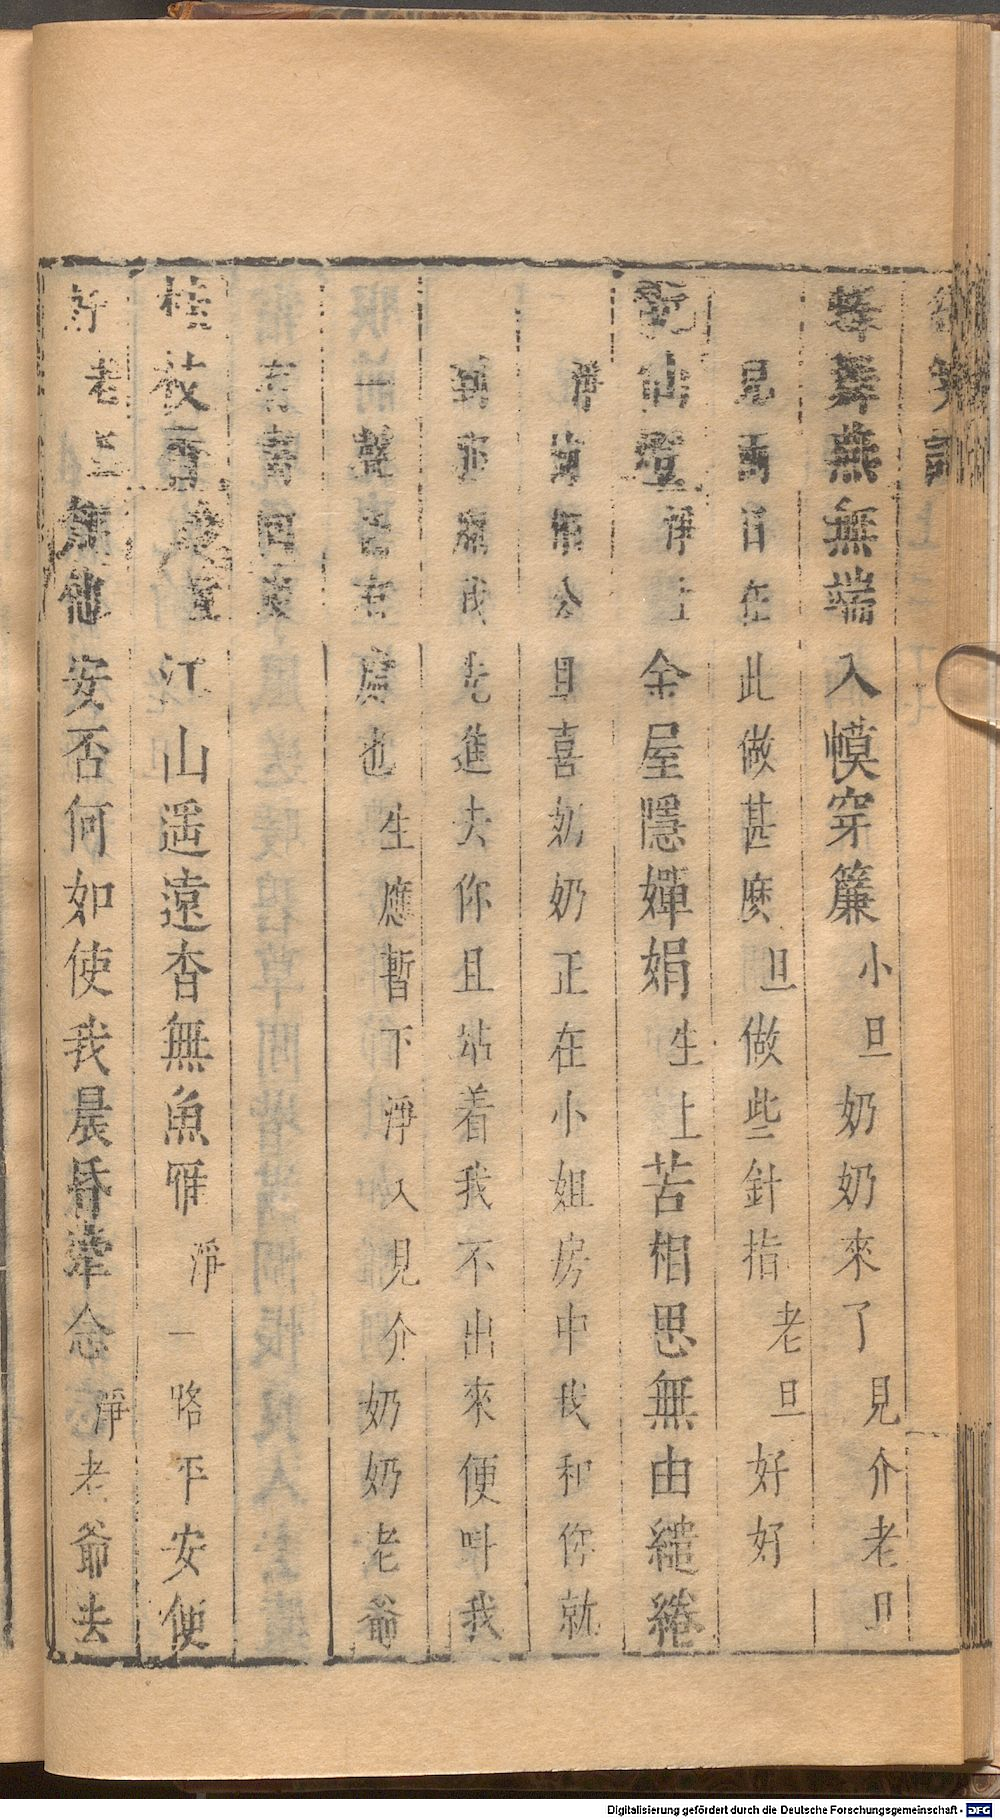 舞燕無端入幙穿簾小旦奶奶來了見介老旦
見兩日在此做甚麽旦做些針指老旦好好
仙燈淨上金屋隱嬋娟生上苦相思無由繾綣
淨相公且喜奶奶正在小姐房中我和你就
我先進去你且站着我不出來便呌我
一聲處也生應暫下淨入見介奶奶老爺
桂枝香江山遥遠杳無魚雁淨一路平安便
好老旦他安否何如使我晨昏牽念淨老爺去
Digitalisierung gefördert durch die Deutsche Forschungsgemeinschaft - DFG